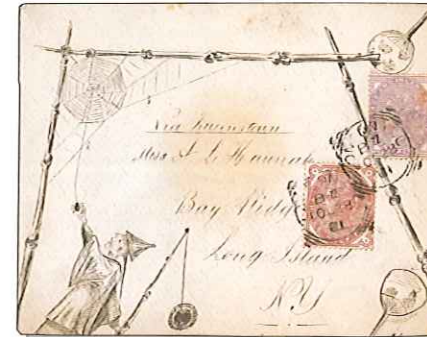 Via Queenstown
Miss A L Hannah
Bay Ridge
Long Island
NY